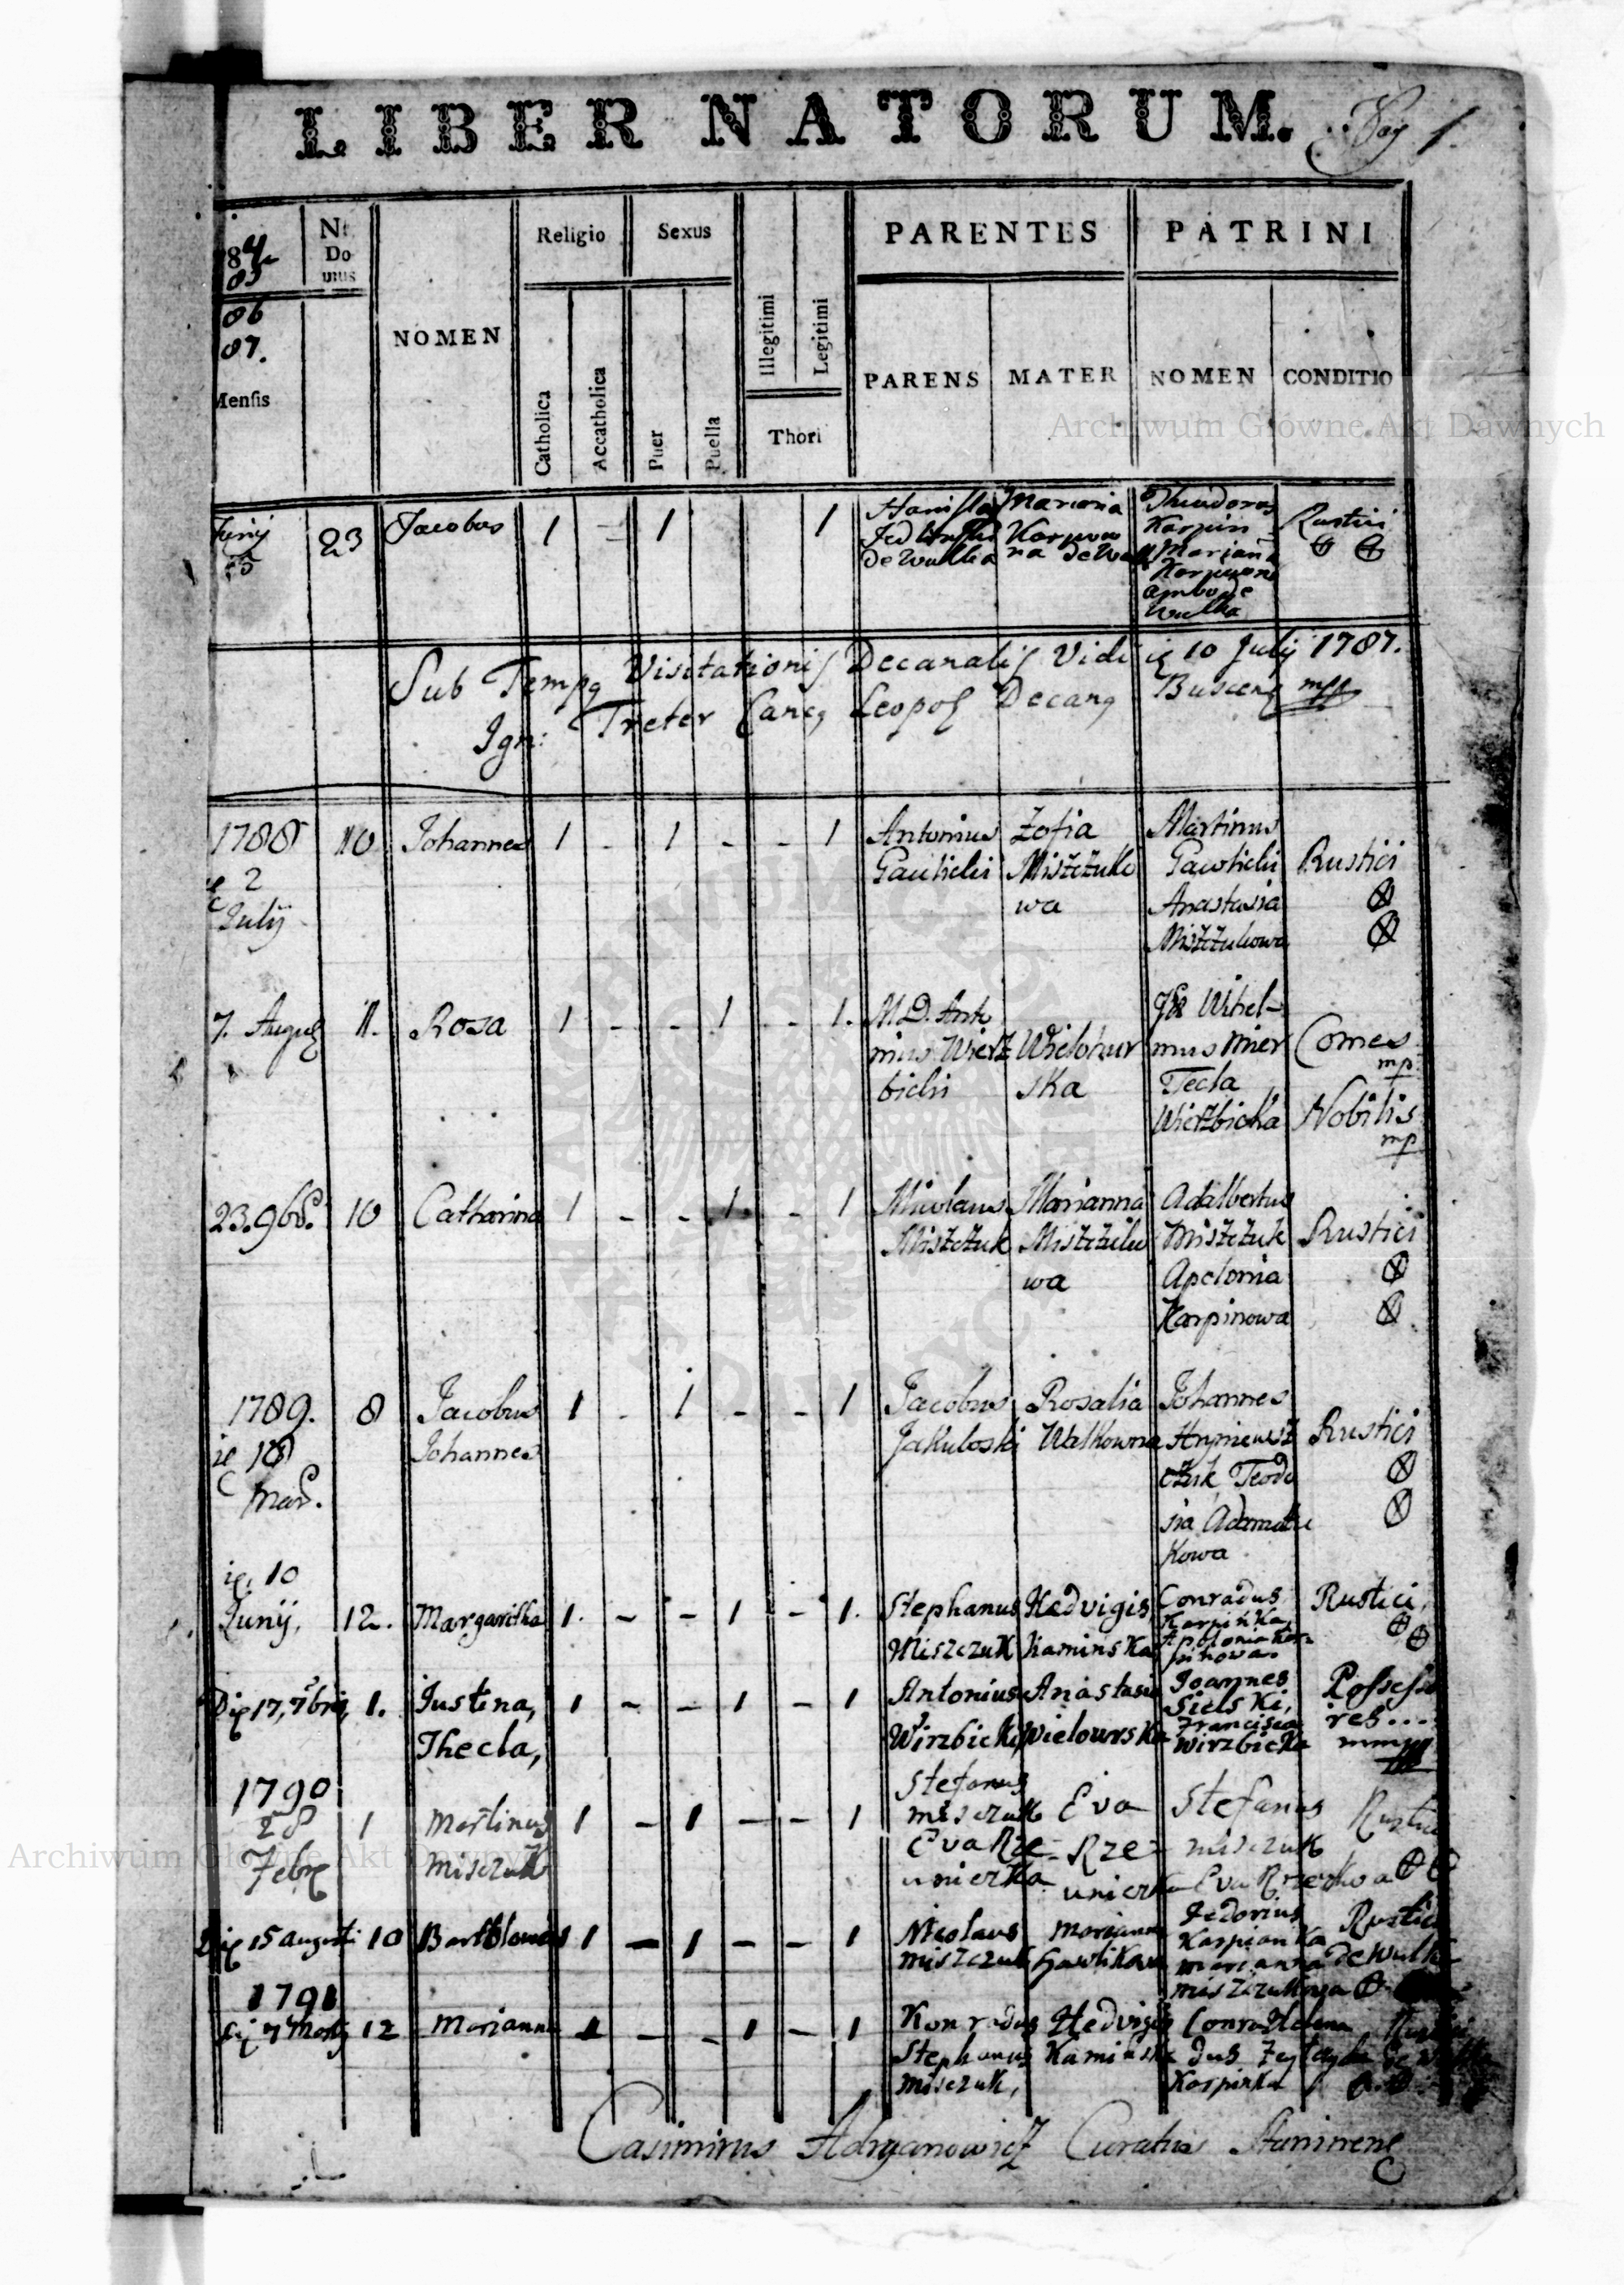 LIBER NATORUM. Pag 1.
84
85
86
87.
Mensis
Nr. Domus
NOMEN
Religio
Catholica
Accatholica
Sexus
Puer
Puella
Illegitimi
Legitimi
Thori
PARENTES
PARENS
MATER
PATRINI
NOMEN
CONDITIO
Archiwum Główne Akt Dawnych
Junij
23 Jacobus 1 1 1
de Wulka
Marianna
Theodorus
Karpin
Mariana
ambo de
Wulka
Rustici
Sub Tempe Visitationis Decanalis Vidi ie 10 July 1787.
Ign: Treter Canc, Leopol Decang Buscens mpp
1788
ie 2
Julij
10 Johannes 1 - 1 - - 1
Antonius
Zofia
Miszczuko
wa
Martinus
Anastasia
Miszczukowa
Rustici
7. Augus 11. Rosa 1 - - 1 - 1.
M. D. Anto
nius Wierz
bicki
Wielohur
ska
Wihel-
mus Mier
Tecla
Wierzbicka
Comes
mp.
Nobilis
mp
23. 9bris. 10 Catharina 1 - - 1 - 1
Nicolaus
Miszczuk
Marianna
Miszczuko
wa
Adalbertus
Miszczuk
Apolonia
Karpinowa
Rustici
1789.
ie 18
Mar.
8 Jacobus
Johannes
1 - 1 - - 1
Jacobus
Jakuboski
Rosalia
Walkowna
Johannes
Hryniewsz
czuk Teodo
sia Adamcu
kowa
Rustici
ie, 10
Junij, 12. Margaritha 1. - - 1 - 1.
Stephanus
Miszczuk
Hedvigis
Kaminska
Conradus
Karpinka,
Apolonia Kar-
pinowa.
Rustici,
Die 17, 7bris, 1. Justina,
Thecla,
1 - - 1 - 1
Antonius
Wirzbicki
Anastasia
Wielowrska
Joannes
Sielski,
Francisca
Wirzbicka
Possesso
res...
1790
28
Febr
1 Martinus
Misczuk
1 - 1 - - 1
Stefanus
misczuk
Eva Rze-
unierka
Eva
Rze-
unierka
Stefanus
misczuk
Rustici
Die 15 augusti 10 Bartolomeus 1 - 1 - - 1
Nicolaus
miszczuk
Marjanna
Hawlikowa
Fedorius
Karpianka
marianna
miszczukowa
Rustici
de Wulka
1791
12 Marianna 1 - - 1 - 1
Konradus
Stephanus
misczuk,
Hedvigis
Kaminska
Conra
dus
Karpinka
Helena
Casimirus Adryanowicz Curatus
Archiwum Główne Akt Dawnych